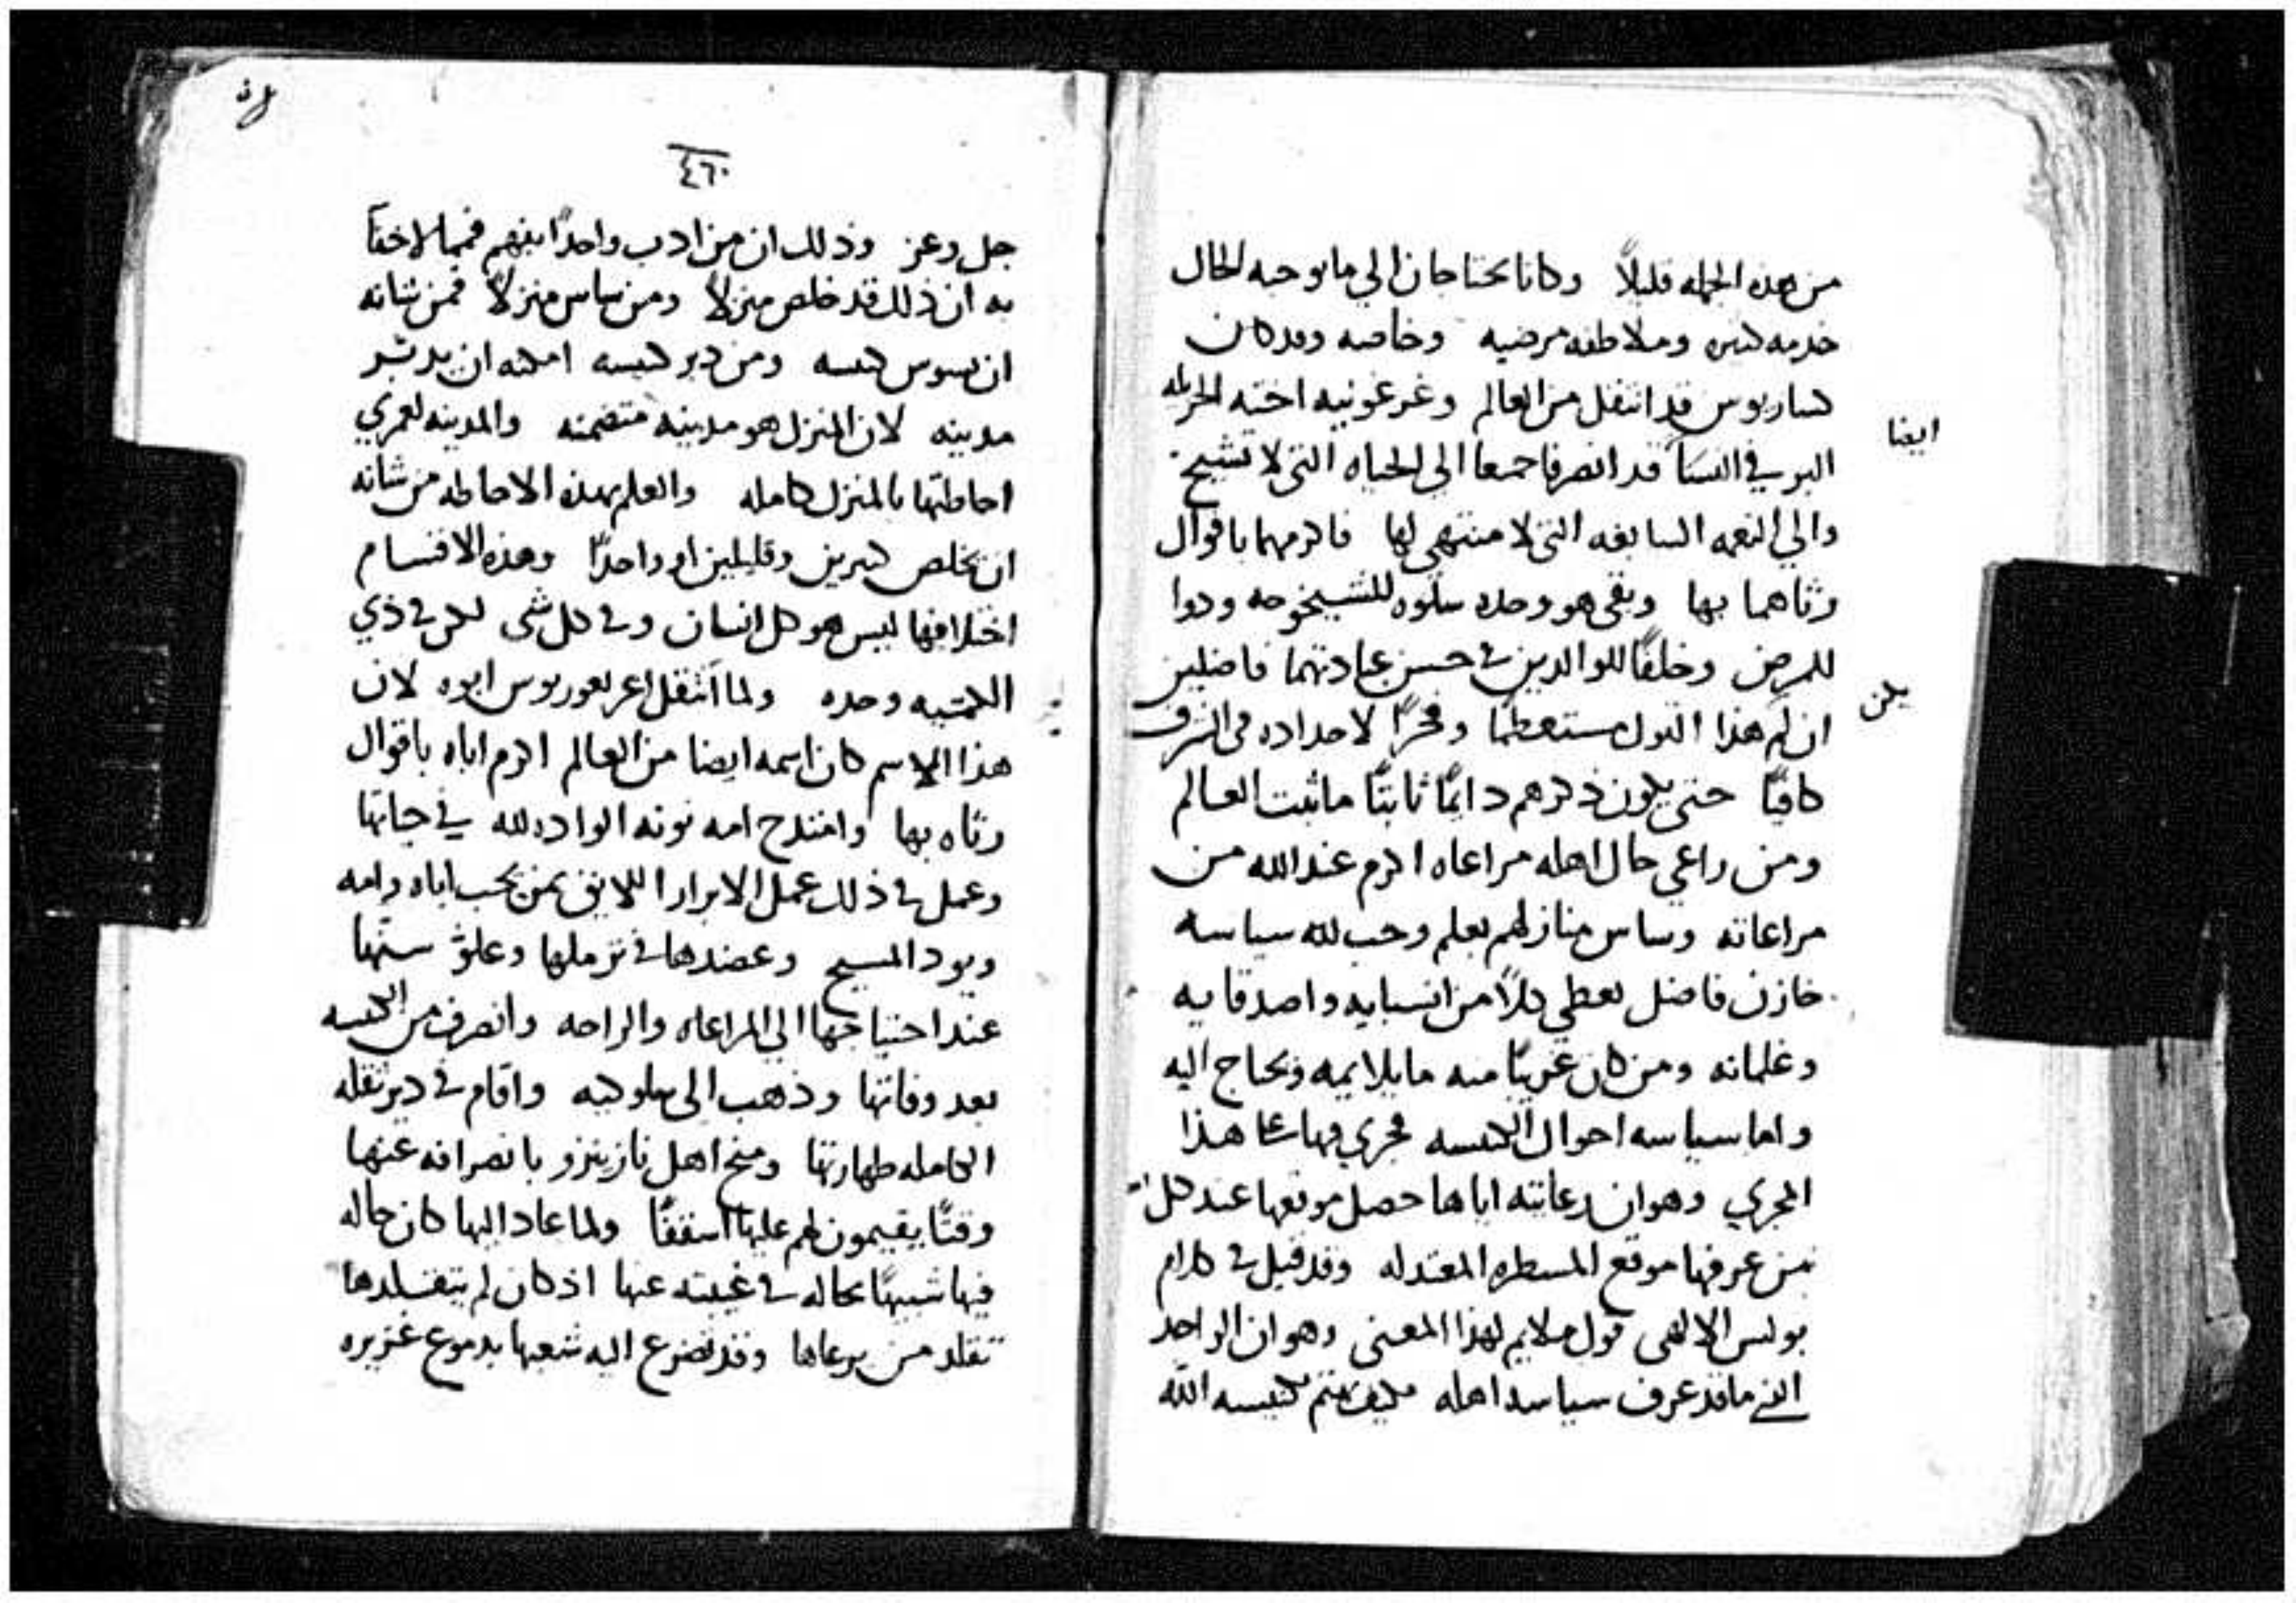 من هذه الجمله قليلاً وكانا يحتاجان الي ما يوجبه الحال
خدمه كثيره وملاطفه مرضيه وخاصه وقد كان
كساريوس قد انتقل من العالم وغرغونيه اخته الجزيله
ايضا
البر في النسآ قد انصرفا جميعا الي الحياه التي لا تشيخ
والي النعمه السابغه التي لا منتهي لها فاكرمهما باقوال
رثاهما بها وبقي هو وحده سلوه للشيخوخه ودوا
للمرض وخلفًا للوالدين في حسن عبادتهما فاضلين
يكن
ان لم هذا القول مستعظمًا وفخرًا لاجداده في الشرف
كافيًا حتى يكون ذكرهم دايمًا ثابتًا ما ثبت العالم
ومن راعي حال اهله مراعاه اكرم عند الله من
مراعاته وساس منازلهم بعلم وحب لله سياسه
خازن فاضل يعطي كلاً من انسبايه واصدقايه
وغلمانه ومن كان غريبًا منه ما يلايمه ويحتاج اليه
واما سياسه احوال الكنيسه فجري فيها علي هذا
المجري وهو ان رعايته اياها حصل موقعها عند كل
من عرفها موقع المسطره المعتدله وقد قيل في كلام
بولس الالهي قول ملايم لهذا المعني وهو ان الواحد
الذي ما قد عرف سياسه اهله فكيف يهتم بكنيسه الله
٤٦٠
جل وعز وذلك ان من ادب واحدًا بفهم فمما لا خفآ
به ان ذلك قد خلص منزلاً ومن ساس منزلاً فمن شانه
ان يسوس كنيسه ومن دبر كنيسه امكنه ان يدبر
مدينه لان المنزل هو مدينه متضمنه والمدينه لعمري
احاطتها بالمنزل كامله والعلم بهذه الاحاطه من شانه
ان يخلص كثيرين وقليلين او واحدًا وهذه الاقسام
اختلافها ليس هو كل انسان وفي كل شي لكن في ذي
الكهنيه وحده ولما انتقل اغريغوريوس ابوه لان
هذا الاسم كان اسمه ايضا من العالم اكرم اباه باقوال
رثاه بها وامتدح امه نونه الواده لله في حياتها
وعمل في ذلك عمل الابرار اللايق بمن يحب اباه وامه
ويود المسيح وعضدها في ترملها وعلو سنها
عند احتياجها الي المراعاه والراحه وانصرف من الكنيسه
بعد وفاتها وذهب الي سلوكيه واقام في دير تقله
الكامله طهارتها ومنح اهل نازينزو بانصرافه عنها
وقتًا يقيمون لهم عليها اسقفًا ولما عاد اليها كان حاله
فيها شبيهًا بحاله في غيبته عنها اذ كان لم يتقلدها
تقلد من يرعاها وقد تضرع اليه شعبها بدموع غزيره